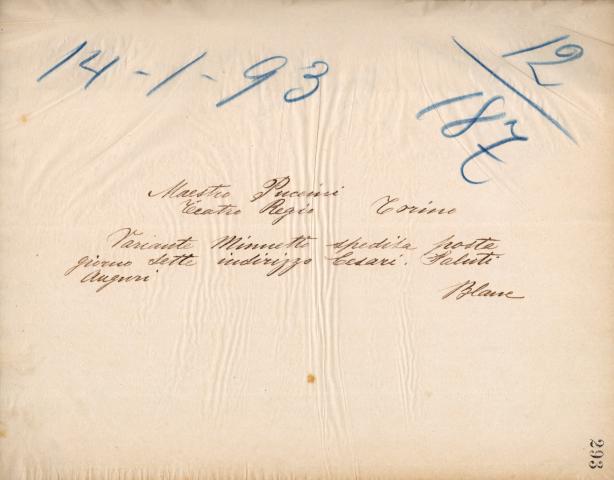 14-1-93
12/187
Maestro Puccini
Teatro Regio Torino
Variante Minuetto spedita posta
giorno sette indirizzo Cesari. Saluti
Auguri
Blanc
293